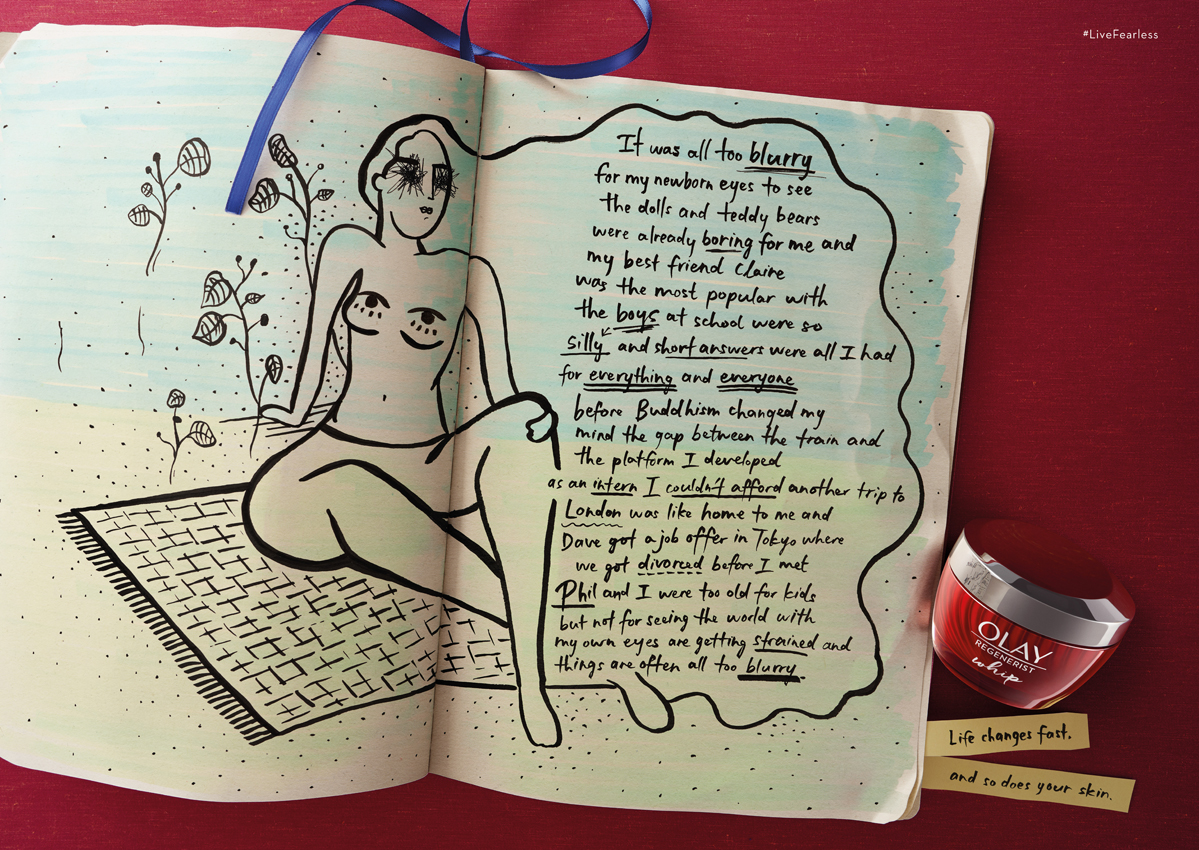 #LiveFearless
It was all too blurry
for my newborn eyes to see
the dolls and teddy bears
were already boring for me and
my best friend Claire
was the most popular with
the boys at school were so
silly and short answers were all I had
for everything and everyone
before Buddhism changed my
mind the gap between the train and
the platform I developed
as an intern I couldn't afford another trip to
London was like home to me and
Dave got a job offer in Tokyo where
we got divorced before I met
Phil and I were too old for kids
but not for seeing the world with
my own eyes are getting strained and
things are often all too blurry
OLAY
REGENERIST
whip
Life changes fast.
and so does your skin.